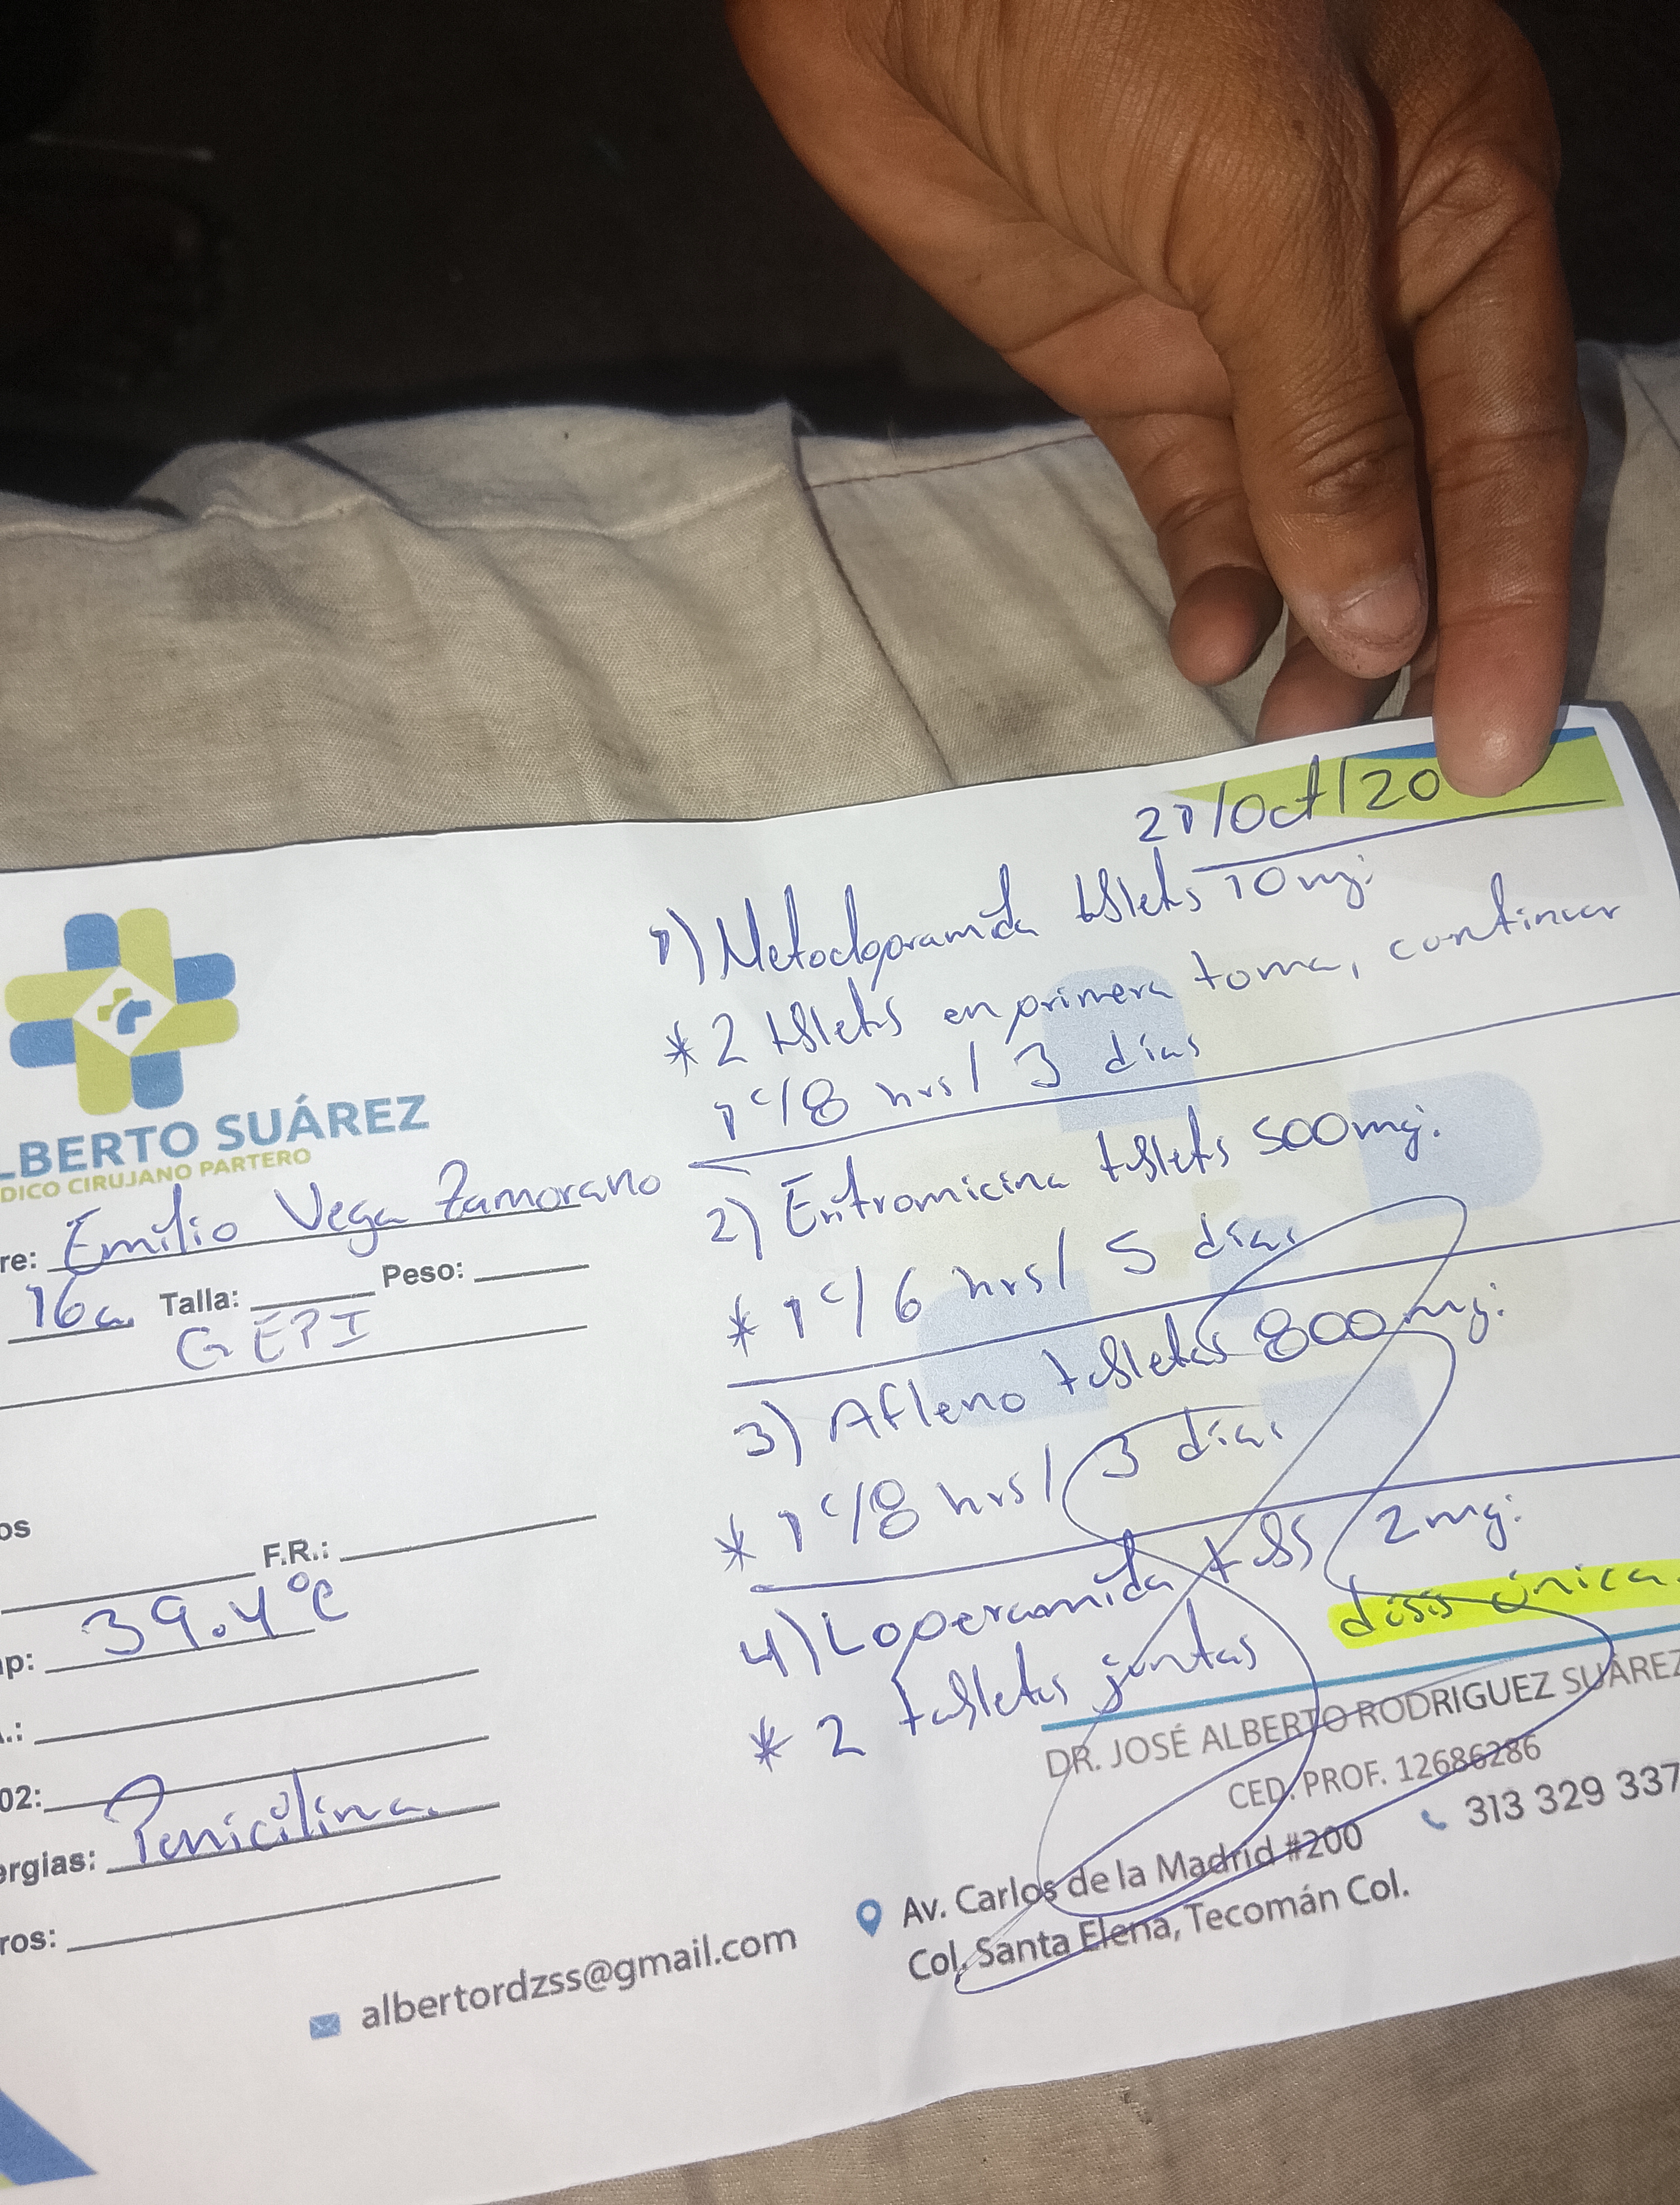 LBERTO SUÁREZ
DICO CIRUJANO PARTERO
re: Emilio Vega Zamorano
16a. Talla: Peso:
GEPI
os
F.R.:
p: 39.4°C
.:
02:
ergias: Penicilina.
ros:
albertordzss@gmail.com
21/Oct/20
1) Metoclopramida tabletas 10mg:
* 2 tabletas en primera toma, continuar
1 c/8 hrs/ 3 días
2) Eritromicina tabletas 500mg.
* 1 c/6 hrs/ 5 días
3) Afleno tabletas 800mg:
* 1 c/8 hrs/ 3 días
4) Loperamida tabs 2mg:
* 2 tabletas juntas dosis única.
DR. JOSÉ ALBERTO RODRIGUEZ SUÁREZ
CED. PROF. 12686286
313 329 337
Av. Carlos de la Madrid #200
Col. Santa Elena, Tecomán Col.